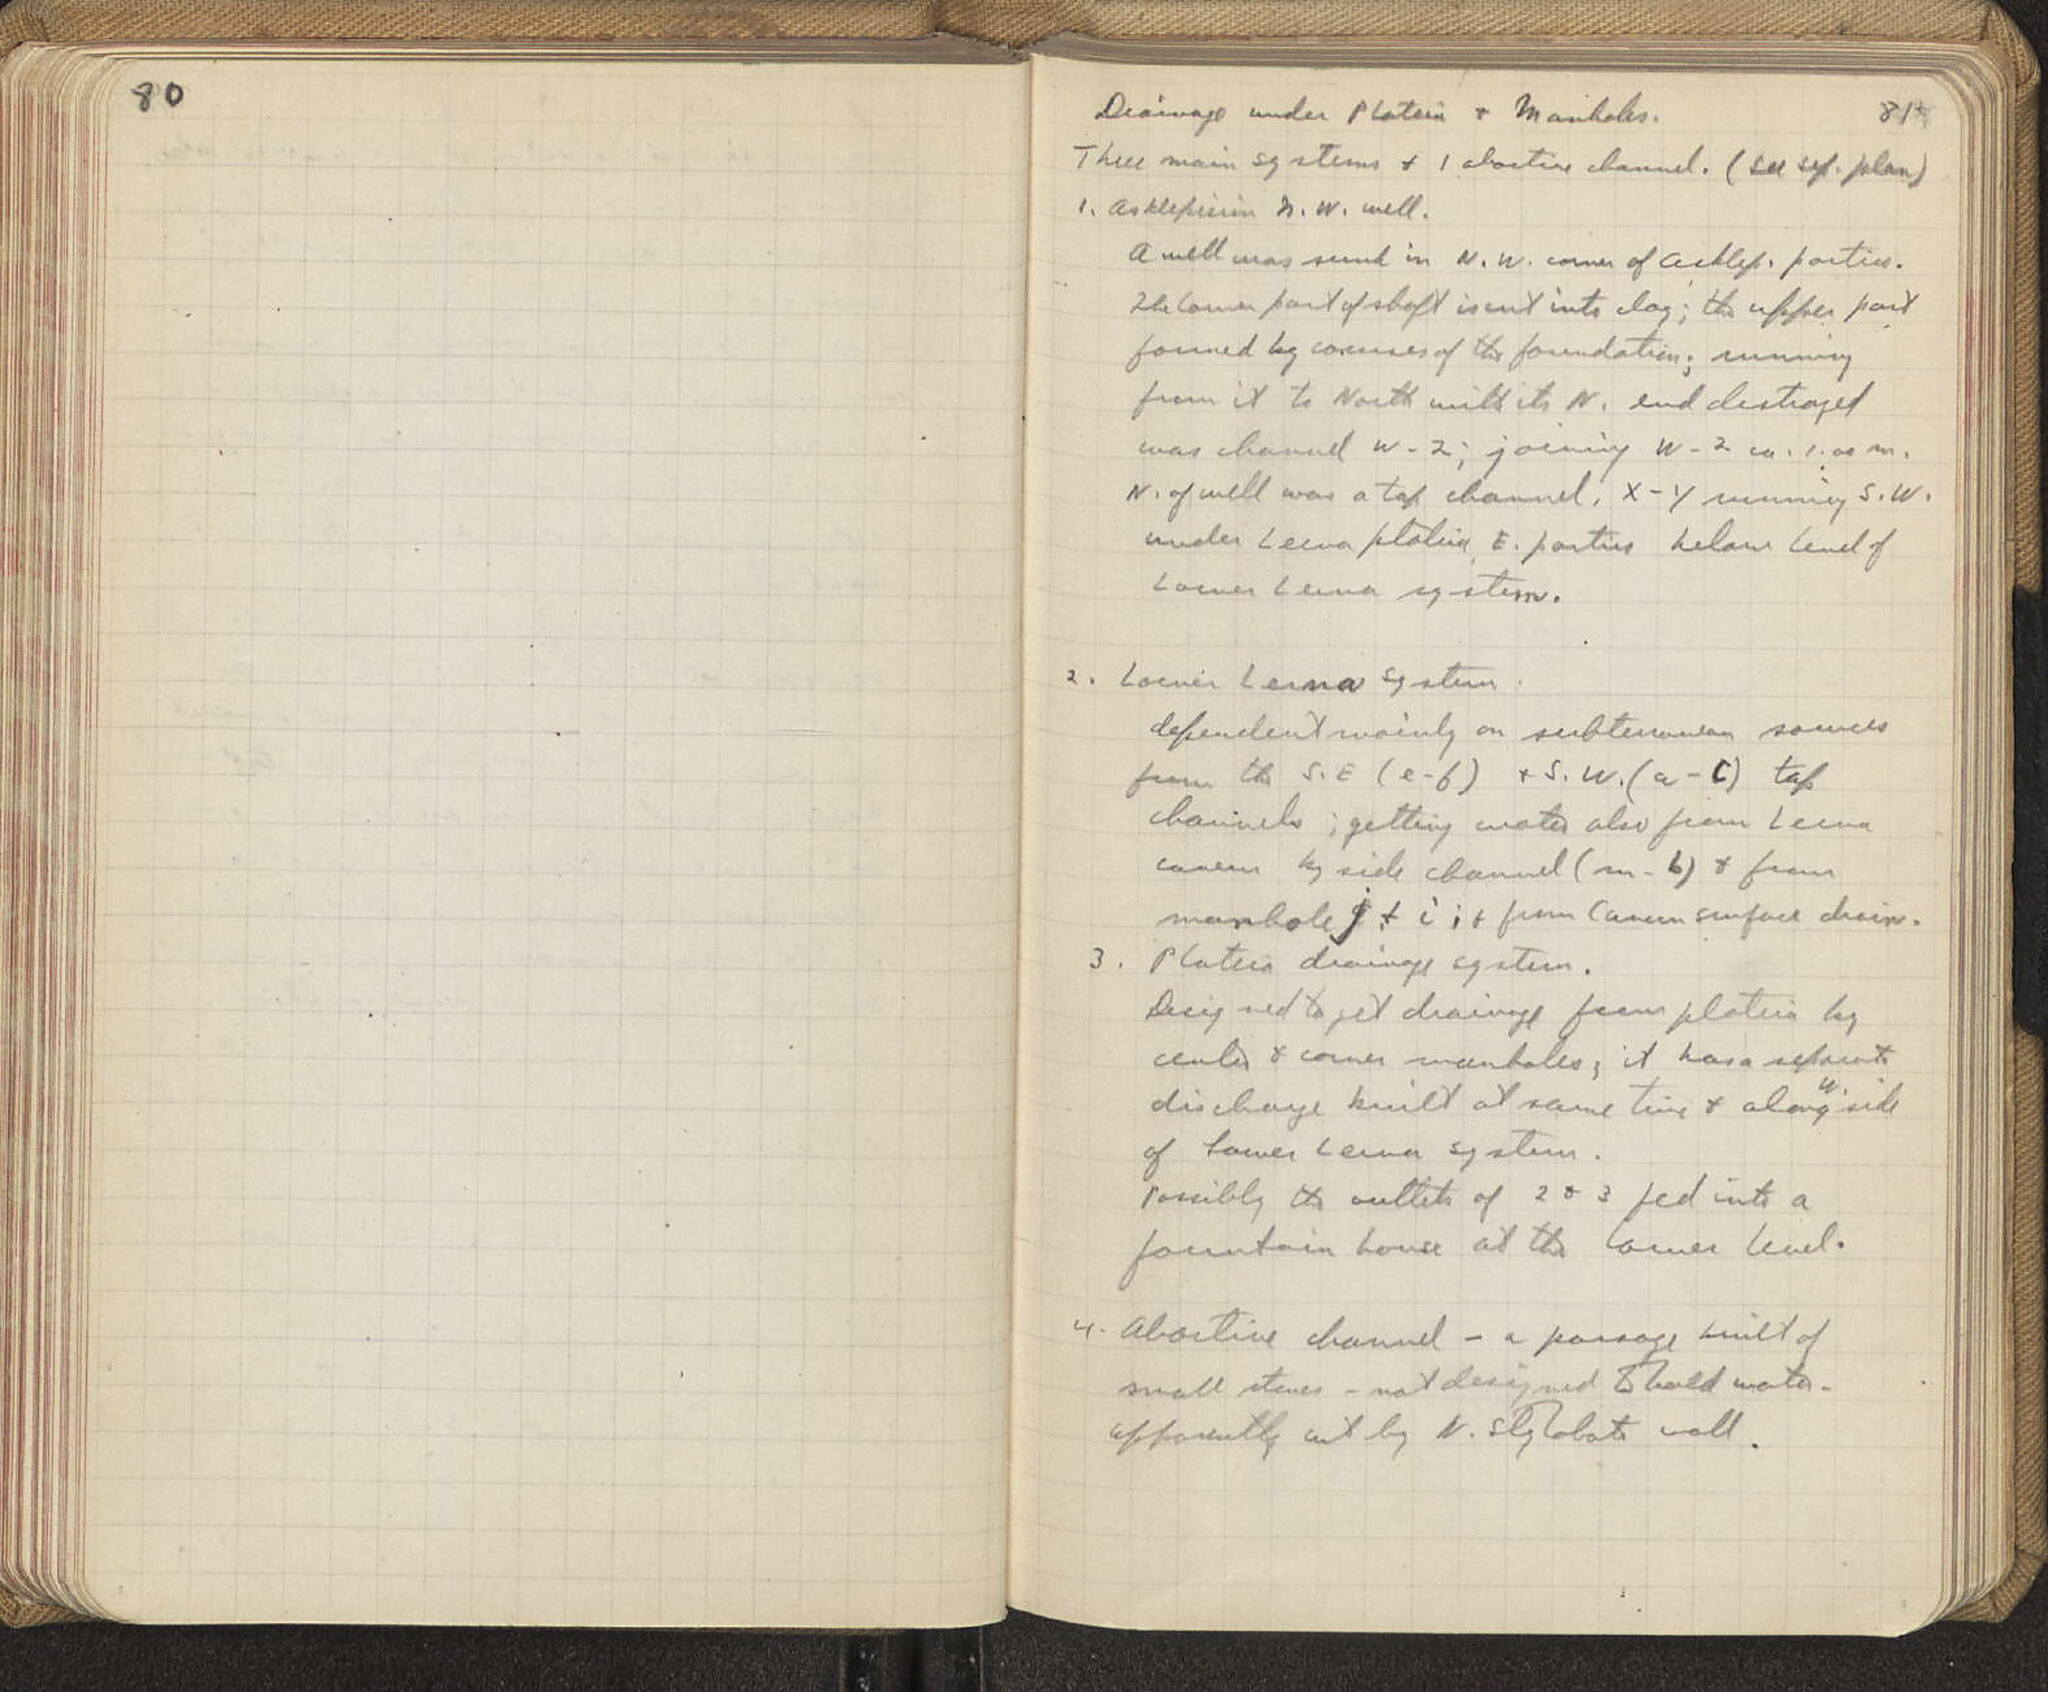 80
81
Drainage under Plateia & Manholes.
Three main systems & 1 abortive channel. (See sep. plan)
1. Asklepieion N.W. well.
A well was sunk in N.W. corner of Asklep. portico.
The lower part of shaft is cut into clay; the upper part
formed by courses of the foundation; running
from it to North with its N. end destroyed
was channel W-Z; joining W-Z ca. 1.00 m.
N. of well was a tap channel, X-Y running S.W.
under Lerna plateia, E. portico below level of
Lower Lerna system.
2. Lower Lerna System.
dependent mainly on subterranean sources
from the S.E (e-f) & S.W. (a-c) tap
channels; getting water also from Lerna
cavern by side channel (m-b) & from
manhole j & i; & from Cavern surface drain.
3. Plateia drainage system.
Designed to get drainage from plateia by
center & corner manholes; it has a separate
discharge built at same time & along W. side
of Lower Lerna system.
Possibly the outlets of 2 & 3 fed into a
fountain house at the lower level.
4. Abortive channel - a passage built of
small stones - not designed to hold water -
apparently cut by N. Stylobate wall.